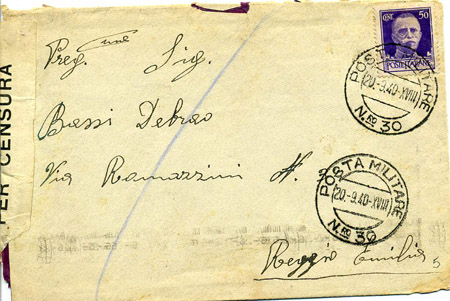 CENT. 50
POSTE ITALIANE
Preg. Sig.
POSTA MILITARE
(20.-9.40-XVIII)
N.RO 30
Bassi Debrao
Via Ramazzini N.
POSTA MILITARE
(20.-9.40-XVIII)
N.RO 30
Reggio Emilia
PER CENSURA